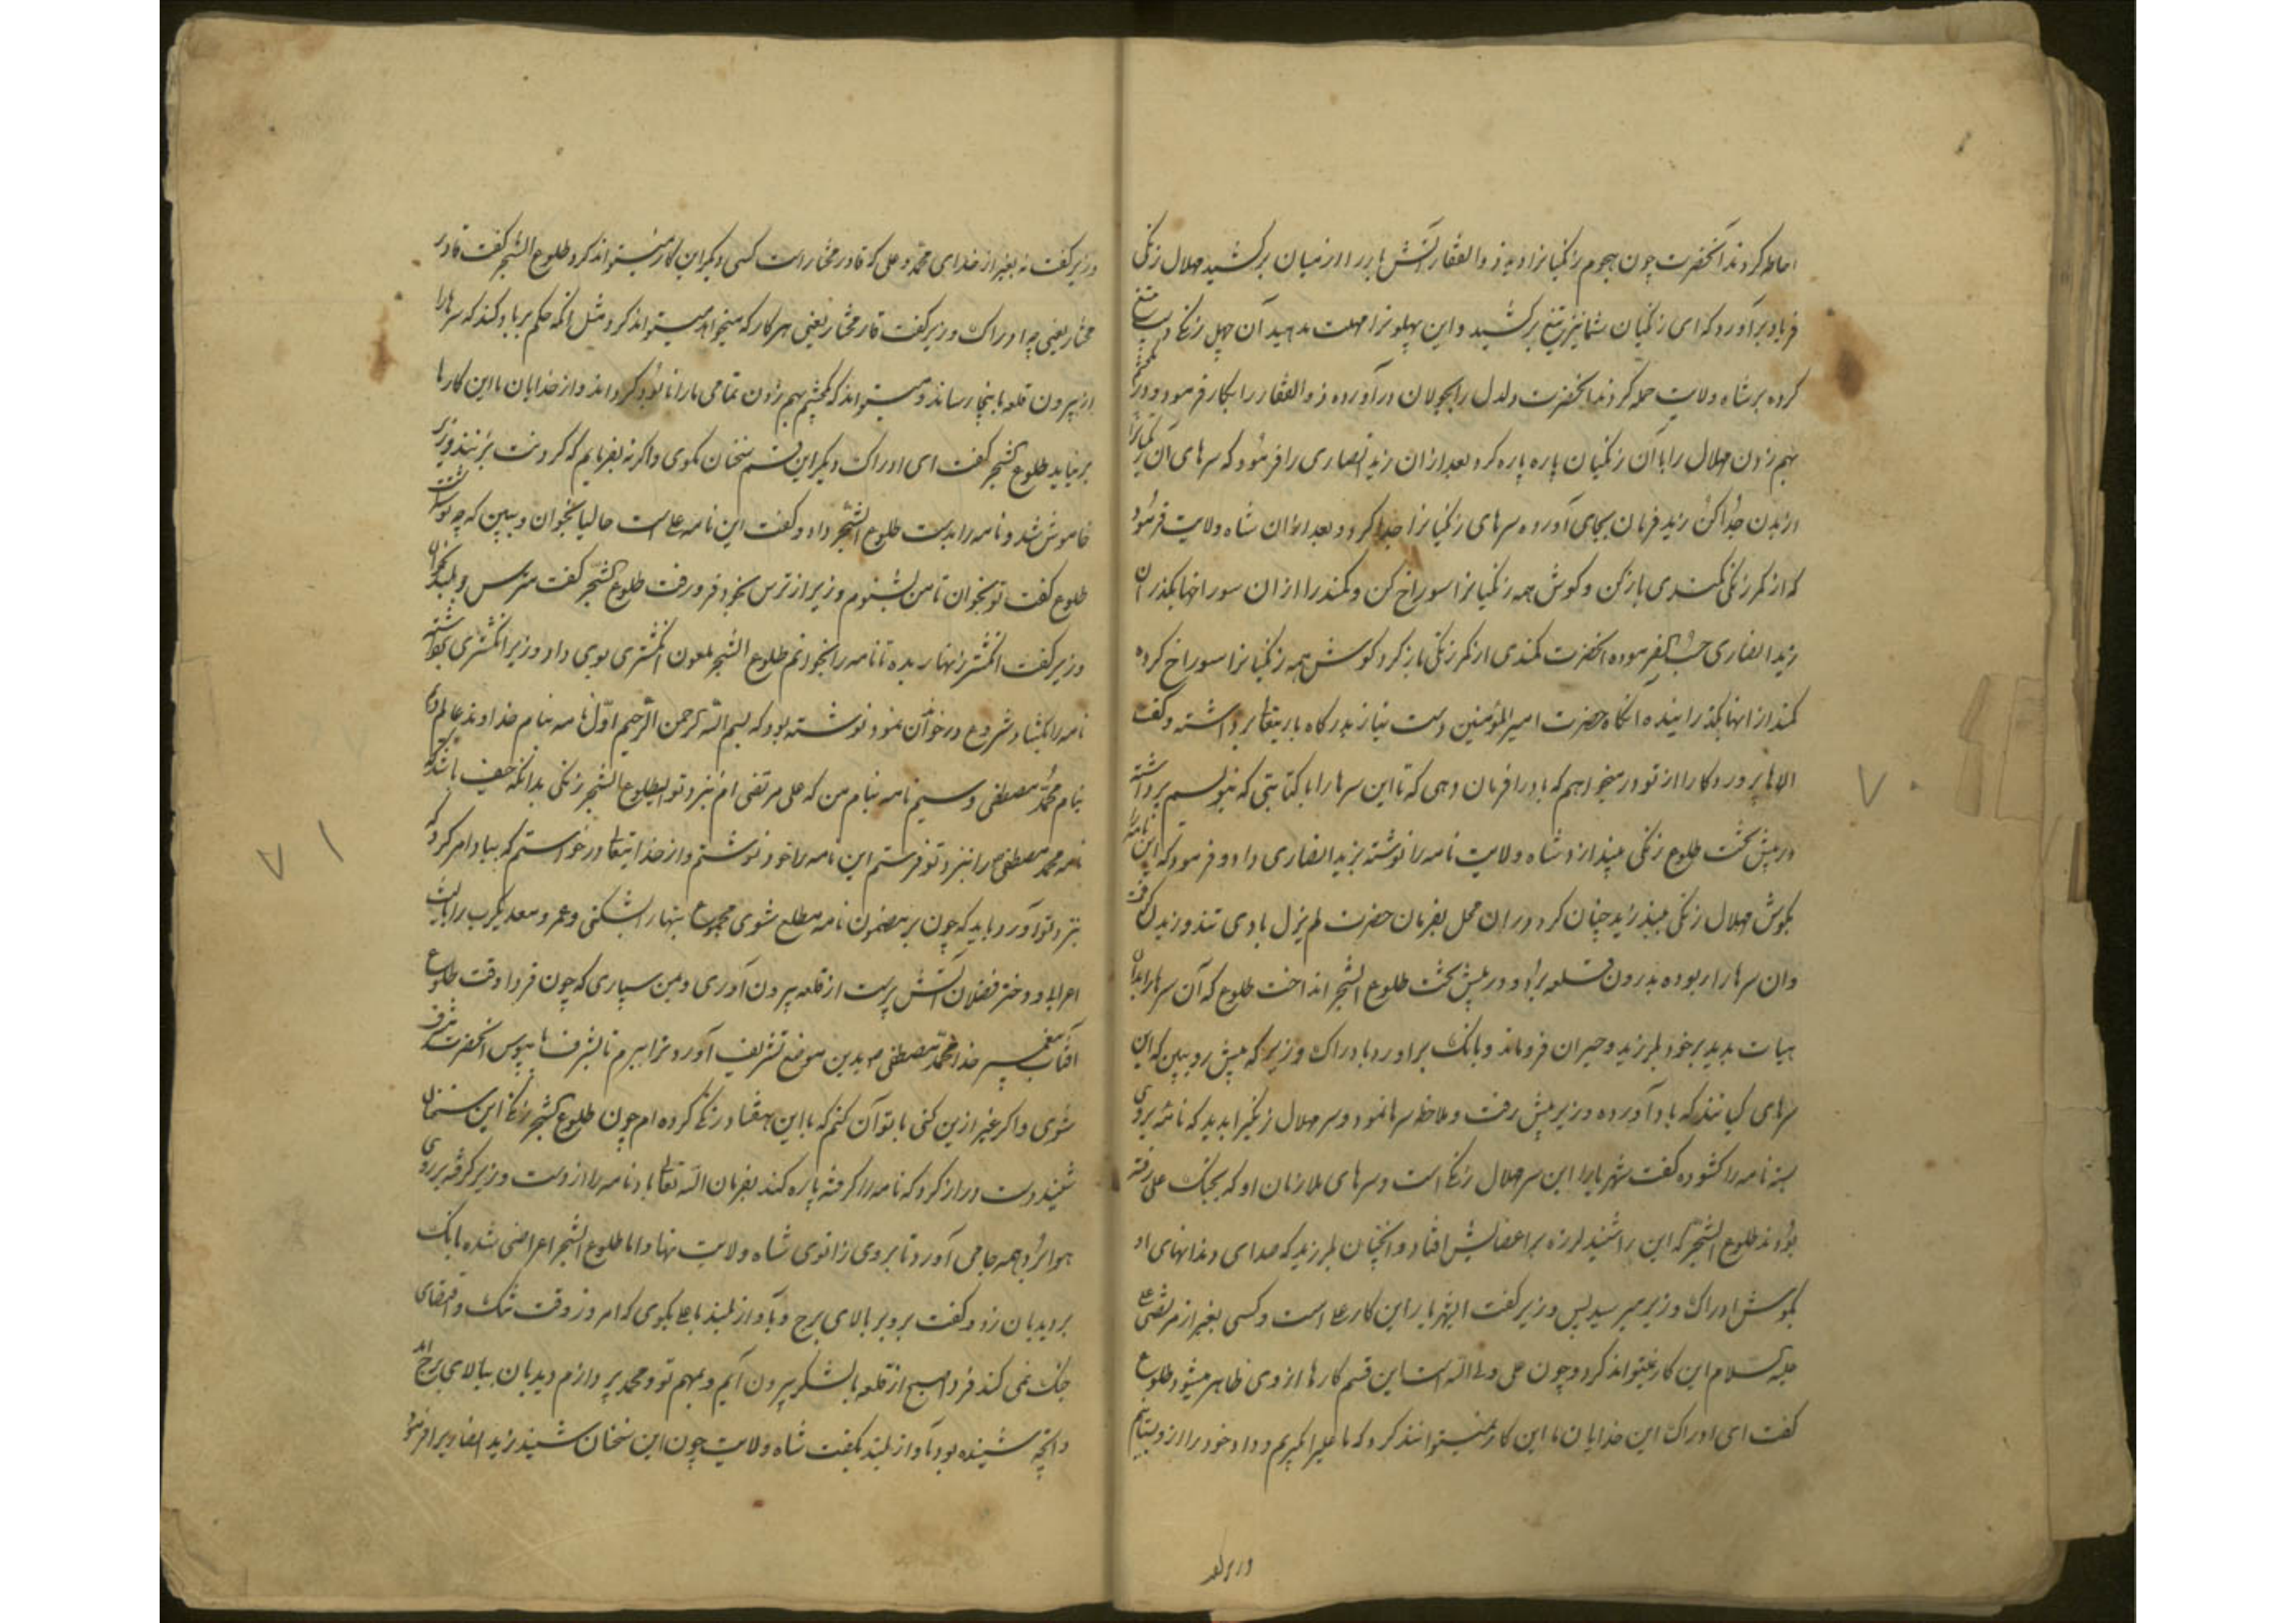 احاطه کردند آنحضرت چون هجوم زنگیانرا دید ذوالفقار آتش بار را از میان برکشید هلال زنگی
فریاد برآورد که ای زنگیان شما نیز تیغ برکشید و این پهلو نرا مهلت مدهید آن چهل زنگی تیغ
کرده بر شاه ولایت حمله کردند آنحضرت دلدل را بجولان درآورده ذوالفقار را بکار فرمود و در
بهم زدن هلال را با آن زنگیان پاره پاره کرد بعد ازان زید انصاری را فرمود که سرهای آن زنگیانرا
از بدن جدا کن زید فرمان بجای آورده سرهای زنگیانرا جدا کرد و بعد ازان شاه ولایت فرمود
که از کمر زنگی کمندی باز کن و گوش همه زنگیانرا سوراخ کن و کمند را ازان سوراخها بگذران
زید انصاری حسب الفرموده آنحضرت کمندی از کمر زنگی باز کرد گوش همه زنگیانرا سوراخ کرده
کمند ازانها بگذرانیده آنگاه حضرت امیرالمؤمنین دست نیاز بدرگاه باریتعالی برداشته و گفت
الاها پروردگارا از تو در میخواهم که باد را فرمان دهی که تا این سرها را با کتابتی که بنویسم برداشته
در پیش تخت طلوع زنگی بیندازد شاه ولایت نامه را نوشته بزید انصاری داد و فرمود که این نامه را
بگوش هلال زنگی ببند زید چنان کرد دران محل بفرمان حضرت لم یزل بادی تند وزیدن گرفت
وان سرها را ربوده بدرون قلعه برد و در پیش تخت طلوع الشجر انداخت طلوع که آن سرها را بدان
هیات بدید برخود بلرزید و حیران فروماند و بانک براورد بادراک وزیر که پیش رو ببین که این
سرهای کیانند که باد آورده وزیر پیش رفت و ملاحظه سرها نمود و سر هلال زنگیرا بدید که نامه بروی
بسته نامه را کشوده گفت شهریارا این سر هلال زنگی است و سرهای ملازمان او که بجنک علی رفته
بودند طلوع الشجر که این را شنید لرزه بر اعضایش افتاد و آنچنان بلرزید که صدای دندانهای او
بگوش ادراک وزیر میرسید پس وزیر گفت ای شهریار این کار علی است و کسی بغیر از مرتضی علی
علیه السلام این کار نمیتواند کرد و چون علی ولی الله است این قسم کارها از وی ظاهر میشود طلوع
گفت ای ادراک این خدایان ما این کار نمیتوانند کرد که ما علیرا بگیریم و داد خود را ازو بستانیم
وزیر گفت
وزیر گفت نه بغیر از خدای محمد و علی که قادر مختار است کسی دیگر این کار نمیتواند کرد طلوع الشجر گفت قادر
مختار یعنی چه ادراک وزیر گفت قادر مختار یعنی هر کار که میخواهد میتواند کرد مثل آنکه حکم بر باد کند که سرها را
از بیرون قلعه باینجا رساند و میتواند که بچشم بهم زدن تمامی ما را نابود گرداند و از خدایان ما این کارها
برنیاید طلوع الشجر گفت ای ادراک دیگر این قسم سخنان نگوی و اگر نه بفرمایم که گردنت بزنند وزیر
خاموش شد و نامه را بدست طلوع الشجر داد و گفت این نامه علی است حالیا بخوان و ببین که چه نوشته است
طلوع گفت تو بخوان تا من بشنوم وزیر از ترس بخود فرورفت طلوع الشجر گفت مترس و بلند بخوان
وزیر گفت انگشتر زنهار بده تا نامه را بخوانم طلوع الشجر ملعون انگشتری بوی داد وزیر انگشتری برداشته
نامه را بگشاد شروع در خواندن نمود نوشته بود که بسم الله الرحمن الرحیم اول نامه بنام خداوند عالم دوم
بنام محمد مصطفی و سیم نامه بنام من که علی مرتضی ام بنزد تو ای طلوع الشجر زنگی بدانکه حیف باشد که
نامه محمد مصطفی را بنزد تو فرستم این نامه را خود نوشتم و از خدایتعالی درخواستم که بباد امر کرد که
بنزد تو آورد باید که چون بر مضمون نامه مطلع شوی مجموع بتها را بشکنی و عمرو معدیکرب را با
اعرابا و دختر فضلان آتش پرست از قلعه بیرون آوری و بمن سپاری که چون فردا وقت طلوع
آفتاب پیغمبر خدا محمد مصطفی بدین موضع تشریف آورد ترا ببرم تا بشرف پابوس آنحضرت مشرف
شوی و اگر غیر ازین کنی با تو آن کنم که با این هفتاد زنگی کرده ام چون طلوع الشجر زنگی این سخنان
شنید دست دراز کرد که نامه را گرفته پاره کند بفرمان الله تعالی باد نامه را از دست وزیر گرفته بر روی
هوا برد و بهمه جا می آورد تا بروی زانوی شاه ولایت نهاد اما طلوع الشجر اعراضی شده بانک
بر دیدبان زد و گفت برو بر بالای برج و باواز بلند با علی بگوی که امروز وقت تنک و اقتضای
جنک نمی کند فردا صبح از قلعه با لشکر بیرون آیم و بمهم تو و محمد پردازم دیدبان ببالای برج آمد
و آنچه شنیده بود باواز بلند بگفت شاه ولایت چون این سخنان شنید زید انصاریرا فرمود